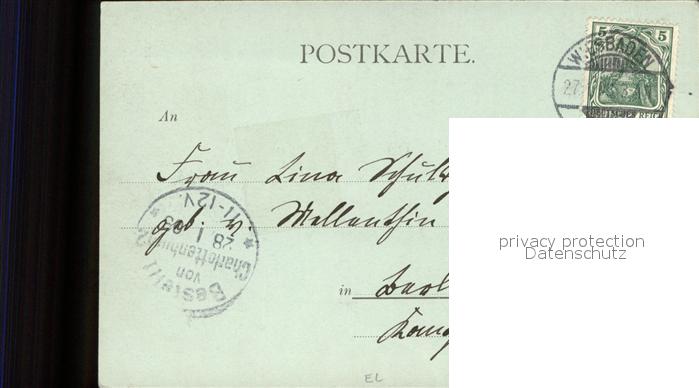 POSTKARTE.
5 5
WIESBADEN
27.
DEUTSCHES REICH
An
Frau Lina Schulz
geb. v. Mellenthin
in Berl
Bestellt
von
Charlottenburg 2
28 1
11-12V.
privacy protection
Datenschutz
EL